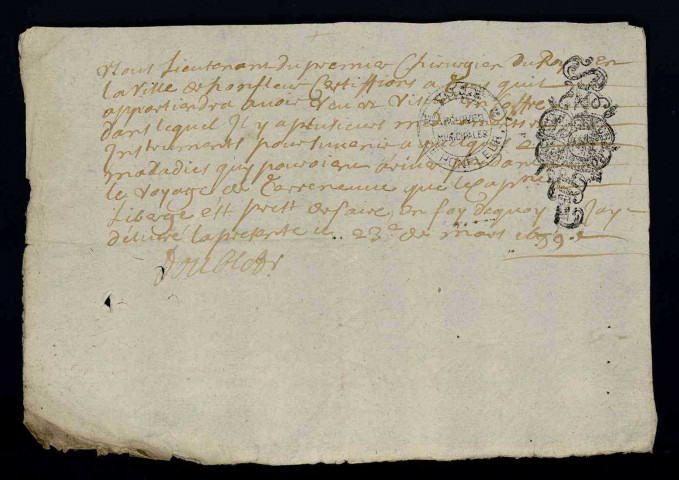 Nous Lieutenant du premier Chirurgien Du Roy en
la Ville de honfleur Certiffions a tous quil
appartiendra avoir Veu et Visité un coffre
dans lequel Il y a plusieurs
Instruments pour survenir a quelques
maladies quy pouroient ariver dans
le voyage de Terreneuve que le cap^ne
Liberge est prest de faire, en foy dequoy Jay
délivré la presente ce 23^e de mars 1699
ARCHIVES
MUNICIPALES
HONFLEUR